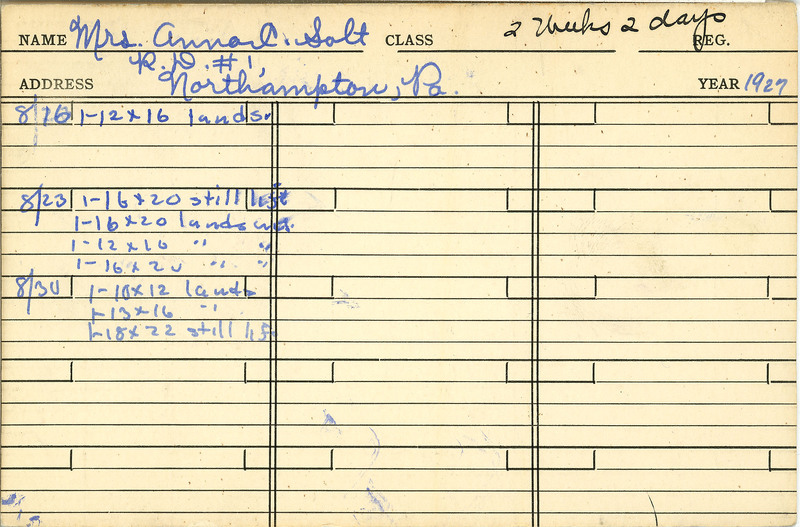 NAME Mrs. Anna C. Solt CLASS 2 Weeks 2 days REG.
R.D. #1,
ADDRESS Northampton, Pa. YEAR 1927
8/16 1-12x16 lands.
8/23 1-16x20 still life
1-16x20 landscape.
1-12x16 " "
1-16x20 " "
8/30 1-10x12 lands
1-13x16 "
1-18x22 still life